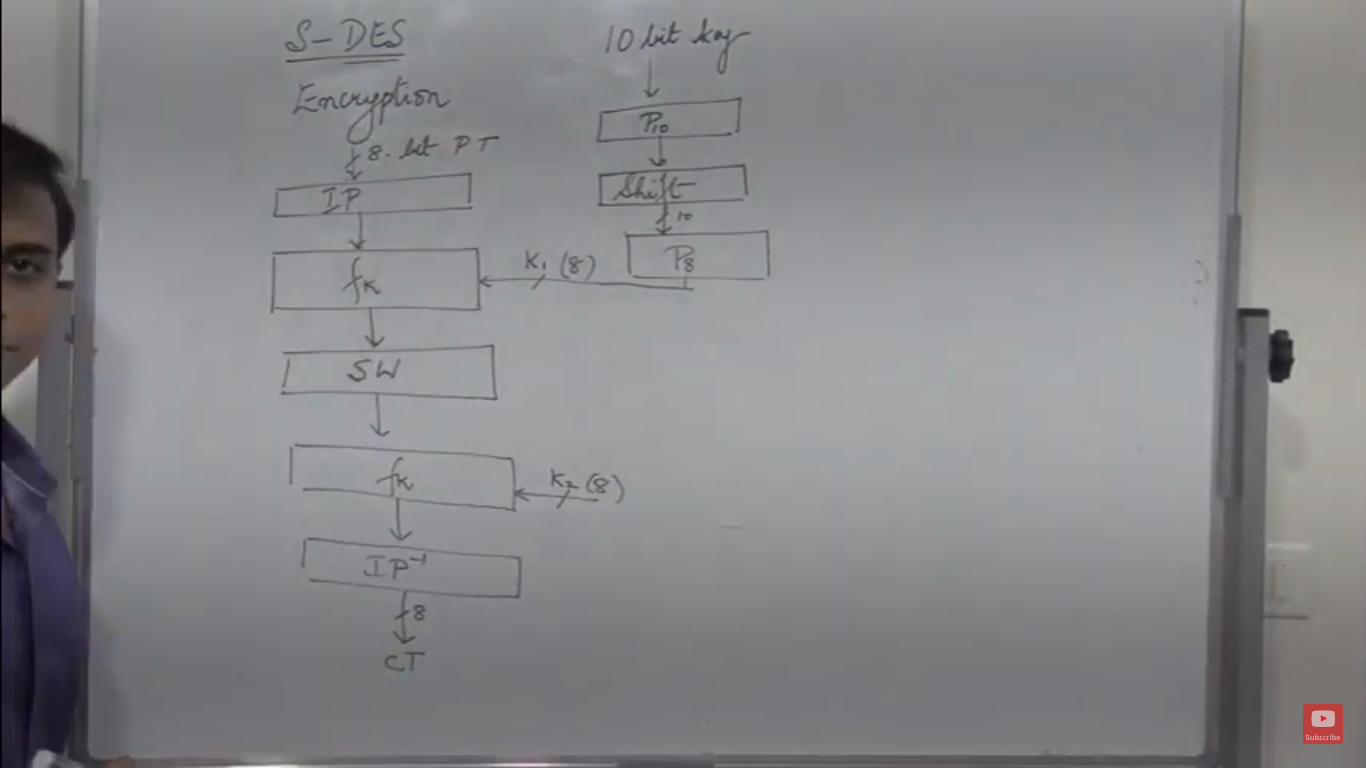 S-DES
Encryption
8-bit PT
IP
fK
SW
fK
IP⁻¹
8
CT
10 bit key
P10
Shift
10
P8
K1 (8)
K2 (8)
Subscribe